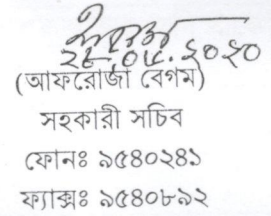 ২৮.০৫.২০২০
(আফরোজা বেগম)
সহকারী সচিব
ফোনঃ ৯৫৪০২৪১
ফ্যাক্সঃ ৯৫৪০৮৯২